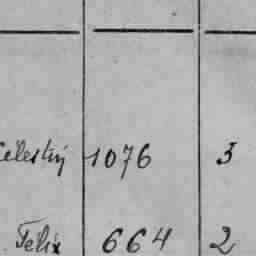 Célestny 1076 3
Félix 664 2